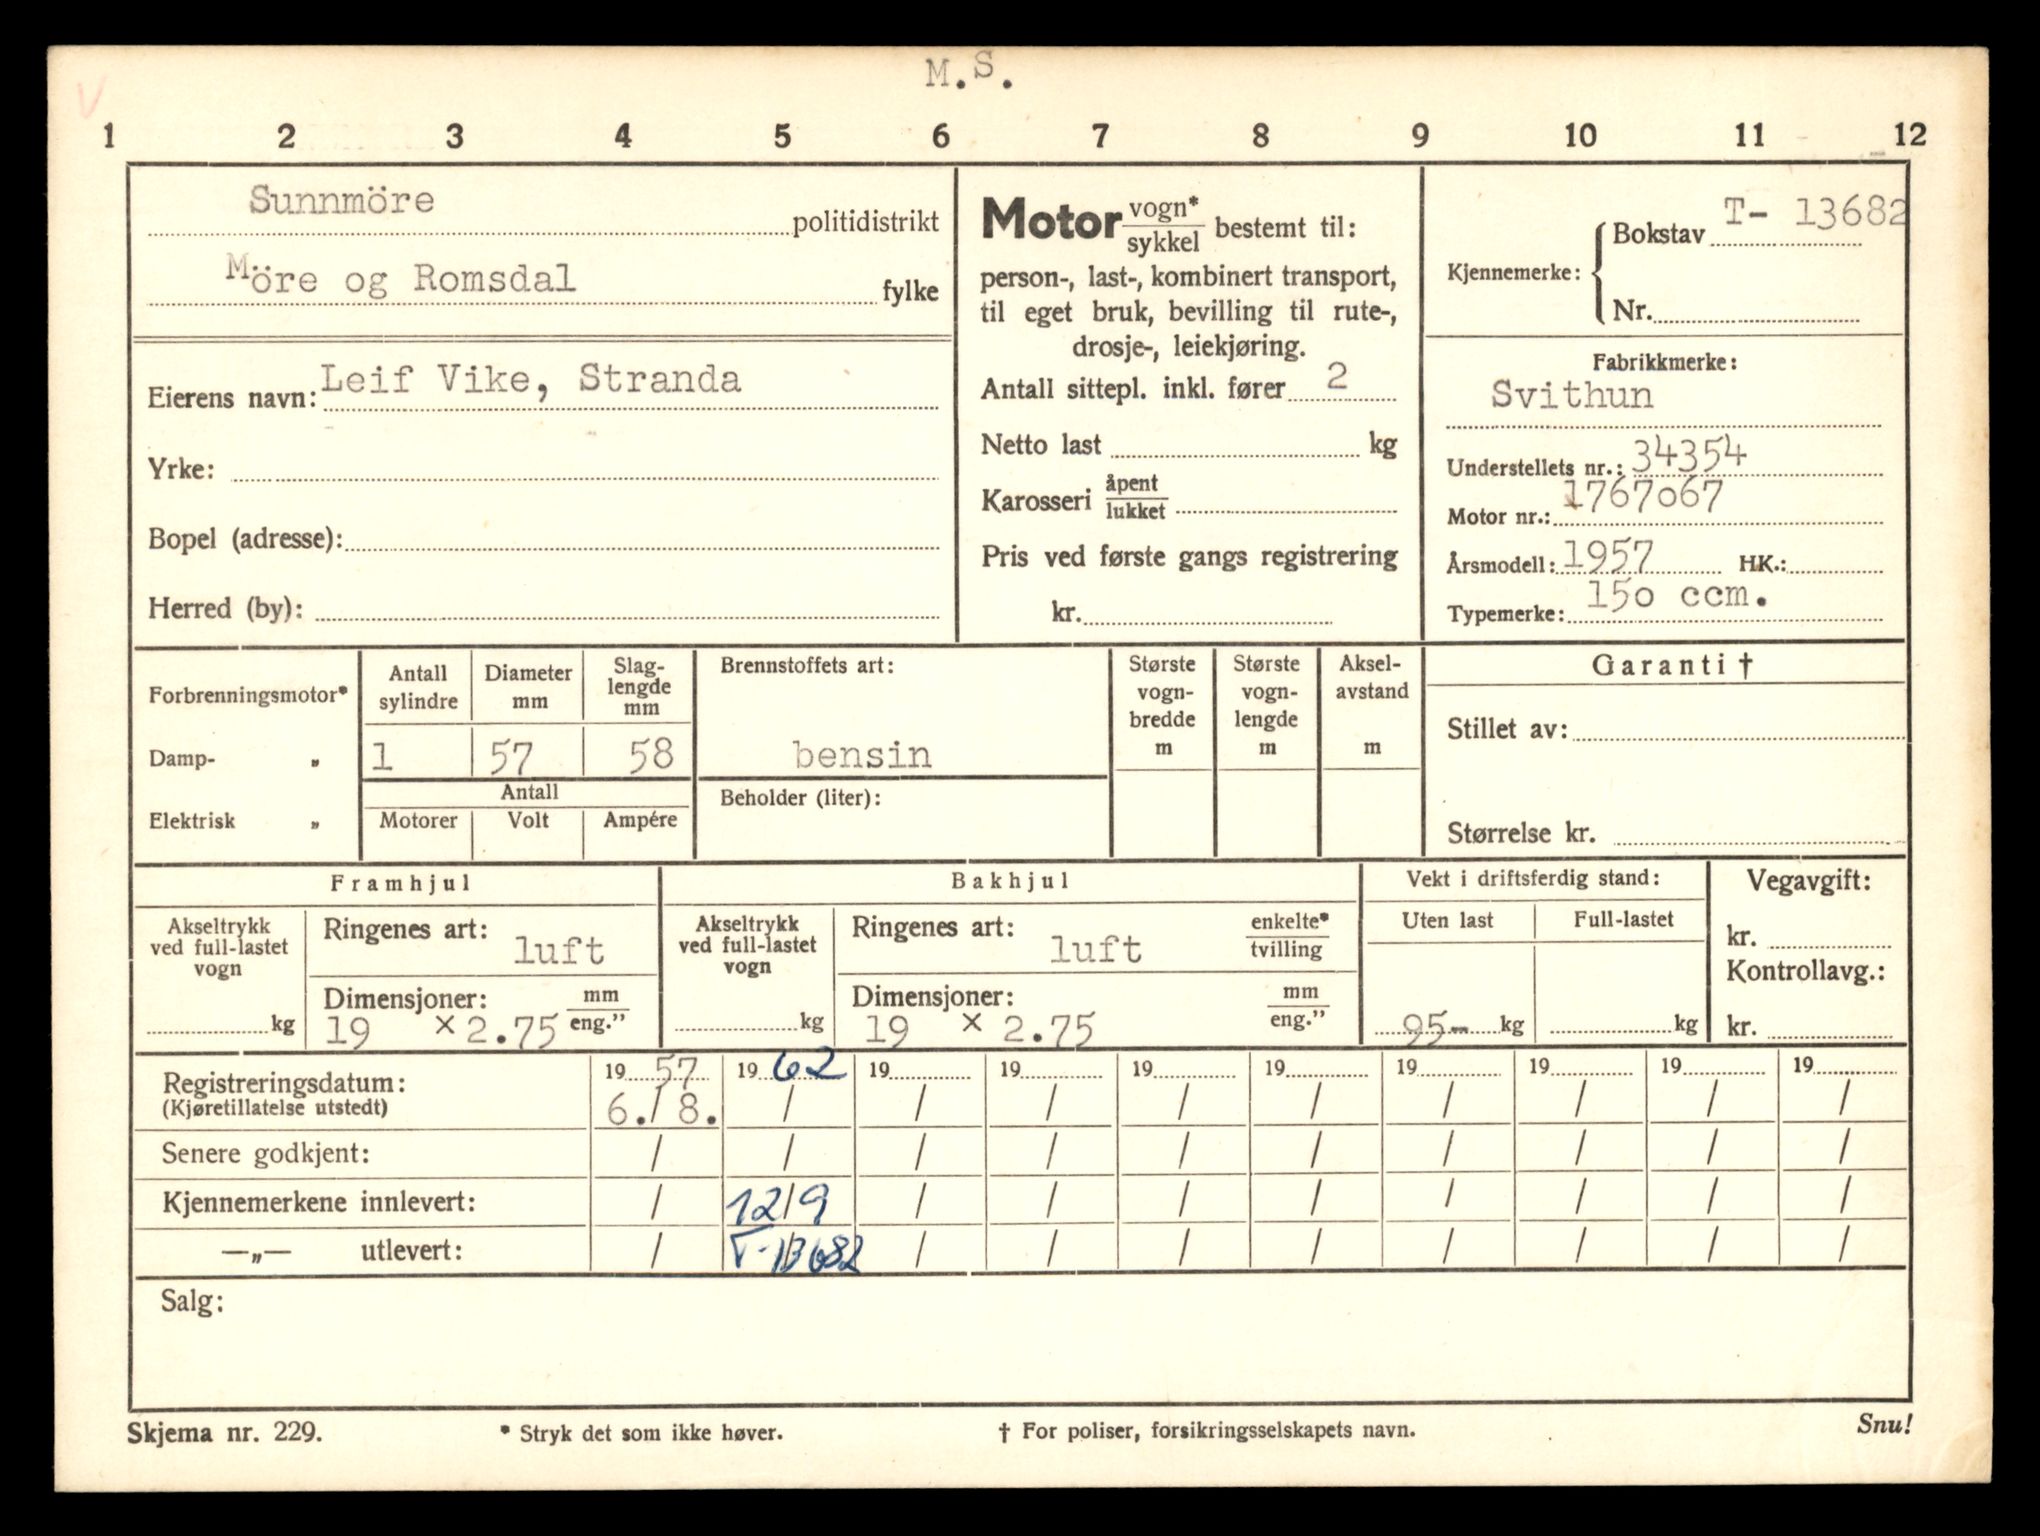 M.S.
V
1 2 3 4 5 6 7 8 9 10 11 12
Sunnmöre politidistrikt
Möre og Romsdal fylke
Eierens navn: Leif Vike, Stranda
Yrke:
Bopel (adresse):
Herred (by):
Motor vogn*
sykkel bestemt til:
person-, last-, kombinert transport,
til eget bruk, bevilling til rute-,
drosje-, leiekjøring.
Antall sittepl. inkl. fører 2
Netto last kg
Karosseri åpent
lukket
Pris ved første gangs registrering
kr.
Kjennemerke: Bokstav T- 13682
Nr.
Fabrikkmerke:
Svithun
Understellets nr.: 34354
Motor nr.: 1767o67
Årsmodell: 1957 HK.:
Typemerke: 15o ccm.
Forbrenningsmotor*
Damp- „
Elektrisk „
Antall sylindre
Diameter mm
Slag-
lengde
mm
1 57 58
Antall
Motorer Volt Ampére
Brennstoffets art:
bensin
Beholder (liter):
Største
vogn-
bredde
m
Største
vogn-
lengde
m
Aksel-
avstand
m
Garanti †
Stillet av:
Størrelse kr.
Framhjul
Akseltrykk
ved full-lastet
vogn
kg
Ringenes art: luft
Dimensjoner: mm
19 × 2.75 eng.”
Bakhjul
Akseltrykk
ved full-lastet
vogn
kg
Ringenes art: luft enkelte*
tvilling
Dimensjoner: mm
19 × 2.75 eng.”
Vekt i driftsferdig stand:
Uten last Full-lastet
95- kg kg
Vegavgift:
kr.
Kontrollavg.:
kr.
Registreringsdatum: 19 57 19 62 19 19 19 19 19 19 19 19
(Kjøretillatelse utstedt) 6. / 8. / / / / / / / / /
Senere godkjent: / / / / / / / / / /
Kjennemerkene innlevert: / 12/9 / / / / / / / /
—„— utlevert: / T-13682 / / / / / / / /
Salg:
Skjema nr. 229. * Stryk det som ikke høver. † For poliser, forsikringsselskapets navn. Snu!